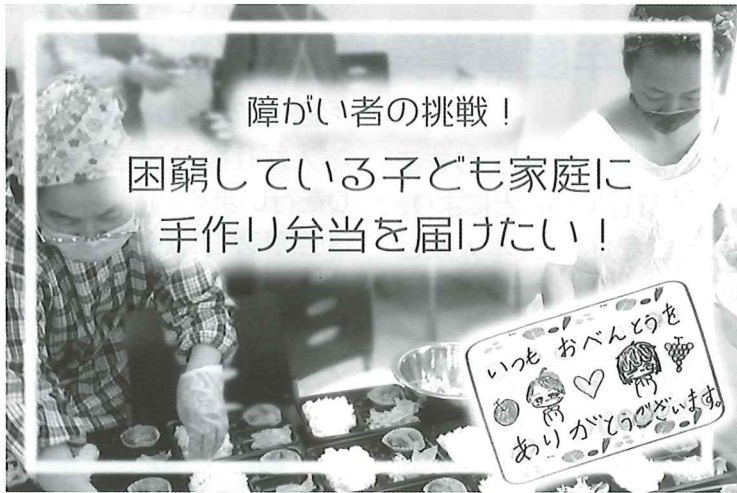 障がい者の挑戦！
困窮している子ども家庭に
手作り弁当を届けたい！
いつも おべんとうを
ありがとうございます。